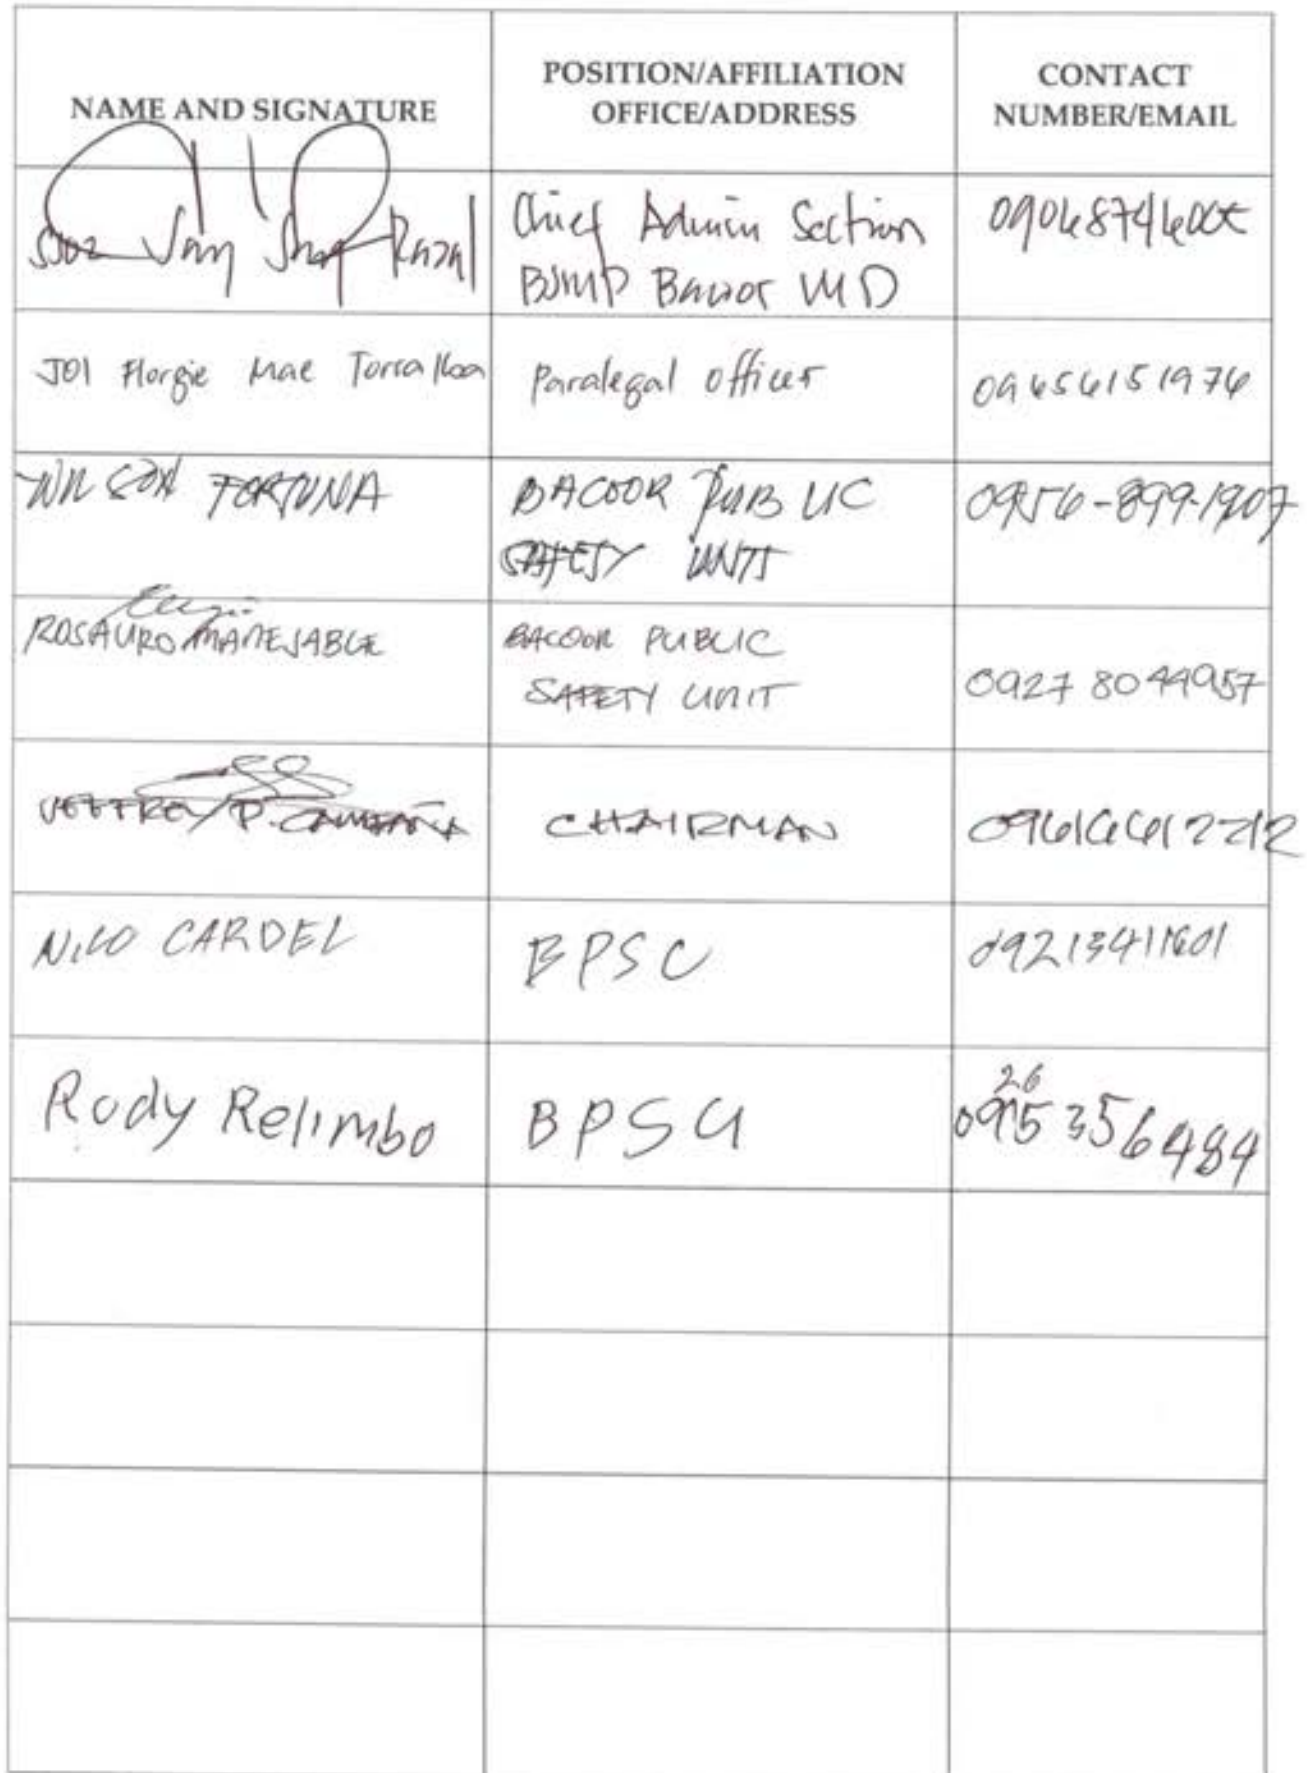 NAME AND SIGNATURE
POSITION/AFFILIATION
OFFICE/ADDRESS
CONTACT
NUMBER/EMAIL
Chief Admin Section
BJMP Bacoor MD
JO1 Florgie Mae Torralba
Paralegal officer
09656151976
WILSON FORTUNA
BACOOR PUBLIC
SAFETY UNIT
0956-899-1907
ROSAURO MANEJABLE
BACOOR PUBLIC
SAFETY UNIT
0927 8044957
JEFFREY P. CAMPAÑA
CHAIRMAN
09616612212
NILO CARDEL
BPSU
Rody Relimbo
BPSU